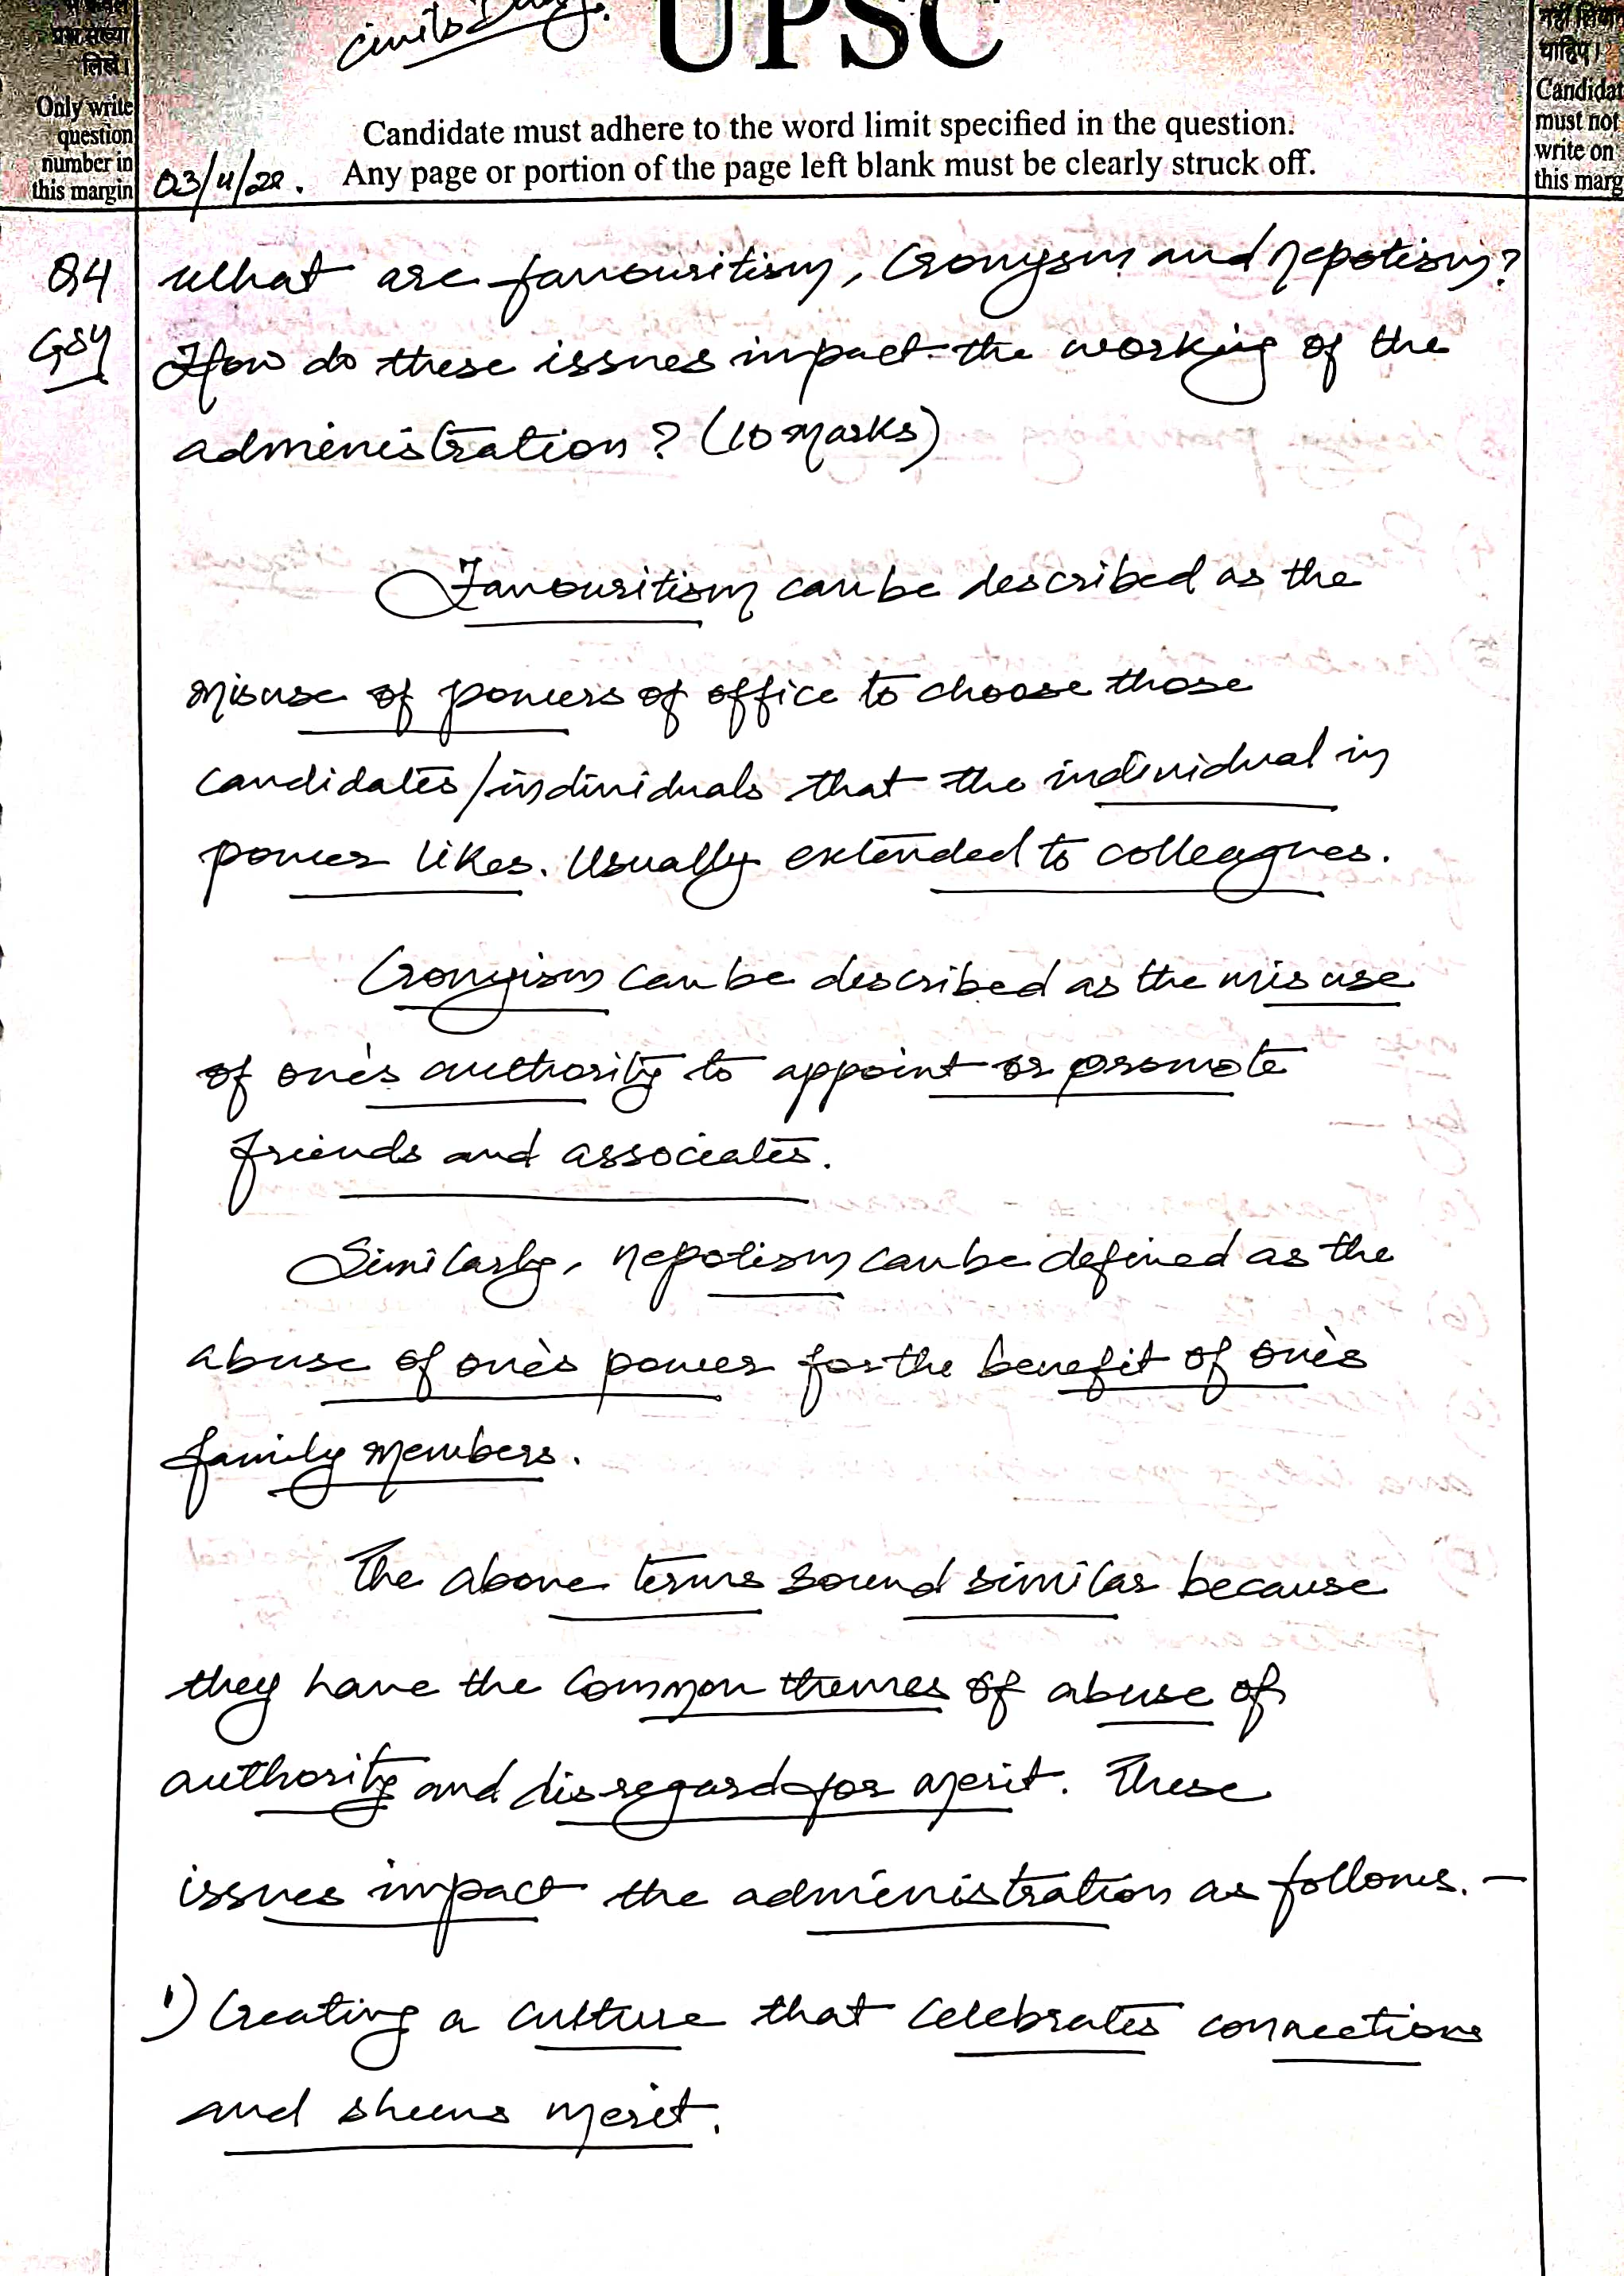 civilsDaily.
UPSC
प्रश्न संख्या
लिखें।
Only write
question
number in
this margin
चाहिए।
Candidat
must not
write on
this marg
Candidate must adhere to the word limit specified in the question.
Any page or portion of the page left blank must be clearly struck off.
03/11/22.
Q4 What are favouritism, Cronysm and nepotism?
GS4 How do these issues impact the working of the
administration? (10 Marks)
Favouritism can be described as the
misuse of powers of office to choose those
candidates/individuals that the individual in
power likes. Usually extended to colleagues.
Cronyism can be described as the misuse
of one's authority to appoint or promote
friends and associates.
Similarly, nepotism can be defined as the
abuse of one's power for the benefit of one's
family members.
The above terms sound similar because
they have the common themes of abuse of
authority and disregard for merit. These
issues impact the administration as follows. -
1) Creating a culture that celebrates connections
and shuns merit.